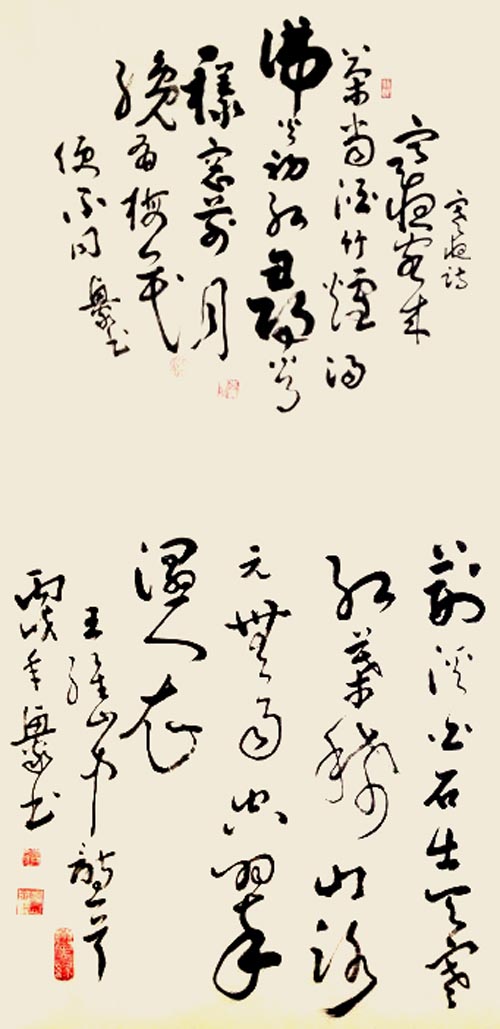 寒夜诗
寒夜客来
茶当酒竹爐湯
沸火初紅尋常
一樣窗前月
纔有梅花
便不同 書
荊溪白石出天寒
紅葉稀山路
元無雨空翠
濕人衣
王維山中詩一首
丙戌年 書